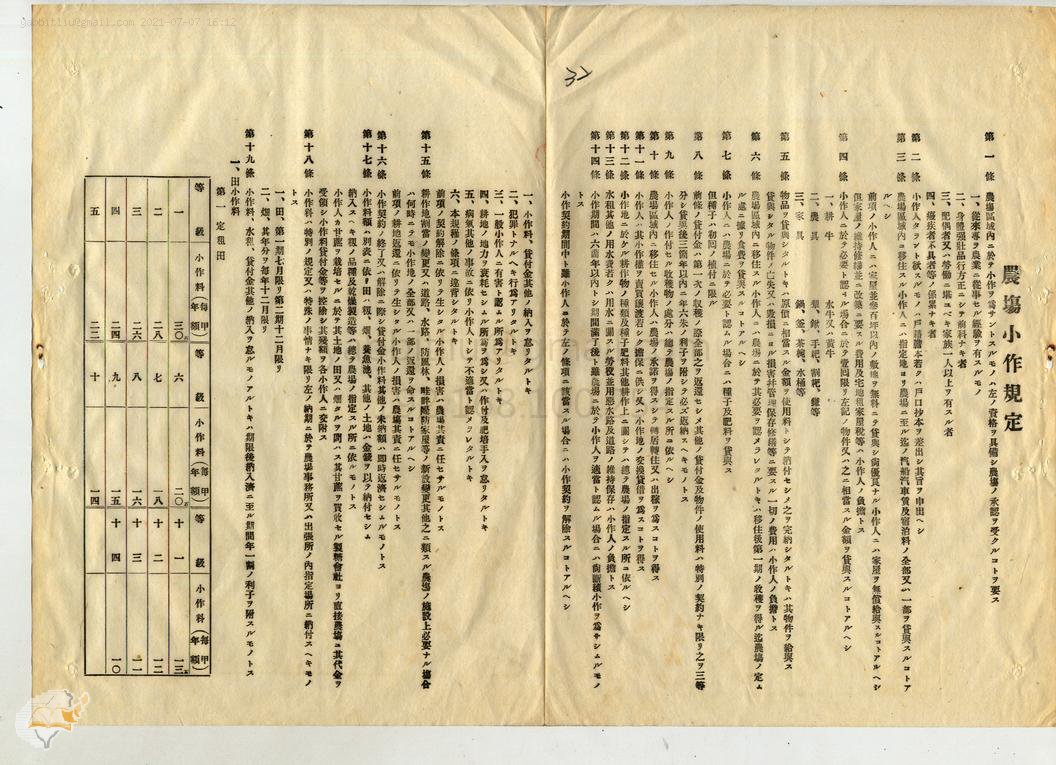 農場小作規定
第一條 農場區域內ニ於テ小作ヲ爲サントスルモノハ左ノ資格ヲ具備シ農場ノ承認ヲ受クルコトヲ要ス
一、從來專ラ農業ニ從事セル經驗ヲ有スルモノ
二、身體强壯品行方正ニシテ前科ナキ者
三、配偶者又ハ勞働ニ堪ユベキ家族一人以上ヲ有スル者
四、癈疾者不具者等ノ係累ナキ者
第二條 小作人タラント欲スルモノハ戶籍謄本若クハ戶口抄本ヲ差出シ其旨ヲ申出ヘシ
第三條 農場區域內ニ移住スル小作人ニハ指定地ヨリ農場ニ至ル迄ノ汽船汽車賃及宿泊料ノ全部又ハ一部ヲ貸與スルコトア
ルヘシ
前項ノ小作人ニハ家屋並參百坪以內ノ敷地ヲ無料ニテ貸與シ尙優良ナル小作人ニハ家屋ヲ無償給與スルコトアルヘシ
但家屋ノ維持修繕並ニ改築ニ要スル費用及宅地租家屋稅等ハ小作人ノ負擔トス
第四條 小作人ニ於テ必要ト認ムル場合ニ於テ壹回限リ左記ノ物件又ハ之ニ相當スル金額ヲ貸與スルコトアルヘシ
一、耕牛 水牛又ハ黃牛
二、農具 犁、鍬、手耙、割耙、鎌等
三、家具 鍋、釜、茶椀、水桶等
第五條 物品ヲ貸與シタルトキハ原價ニ相當スル金額ヲ使用料トシテ納付セシメ之ヲ完納シタルトキハ其物件ヲ給與ス
貸與シタル物件ノ亡失又ハ毀損ニヨル損害幷管理保存修繕等ニ要スル一切ノ費用ハ小作人ノ負擔トス
第六條 農場區域內ニ移住スル小作人ニハ農場ニ於テ其必要ヲ認メタランクルトキハ移住後第一期ノ收穫ヲ得ル迄農場ノ定ム
ル處ニ據リ食費ヲ貸與スルコトアルヘシ
第七條 小作人ニハ農場ニ於テ必要ト認ムル場合ニハ種子及肥料ヲ貸與ス
但種子ハ初回ノ植付ニ限ル
第八條 前條ノ貸付金ハ第一次ノ收穫ノ際全部之ヲ返還セシメ其他ノ貸付金及物件ノ使用料ハ特別ノ契約ナキ限リ之ヲ三等
分シ貸與後三箇年以內ニ年六朱ノ利子ヲ附シ必ズ返納スヘキモノトス
第九條 小作人ノ作付セル收穫物ノ處分ハ總テ農場ノ指定スル所ニ依ルヘシ
第十條 農場區域內ニ移住セル小作人ハ農場ノ承諾ヲ得スシテ轉居轉住又ハ出稼ヲ爲スコトヲ得ス
第十一條 小作人ハ其小作權ヲ賣買讓渡若シクハ擔保ニ供シ又ハ小作地ノ交換貸借ヲ爲スコトヲ得ス
第十二條 小作地ニ於ケル耕作物ノ種類及種子肥料其他耕作上ニ關シテハ總テ農場ノ指定スル所ニ依ルヘシ
第十三條 水租其他ノ用水費者クハ用水ニ關スル勞役並用惡水路及道路ノ維持保存ハ小作人ノ負擔トス
第十四條 小作期間ハ六箇年以內トシ期間滿了後ト雖農場ニ於テ小作人ヲ適當ト認ムル場合ニハ尙斷續小作ヲ爲サシムルモノ
トス
小作契約期間中ト雖小作人ニシテ左ノ條項ニ該當スル場合ニハ小作契約ヲ解除スルコトアルヘシ
一、小作料、貸付金其他ノ納入ヲ怠リタルトキ
二、犯罪トナルヘキ行爲アリタルトキ
三、一般小作人ニ有害ト認ムル所爲アリタルトキ
四、耕地ノ地力ヲ衰耗セシムル所爲ヲ爲シ又ハ作付及肥培手入ヲ怠リタルトキ
五、病氣其他ノ事故ニ依リ小作人トシテ不適當ト認メラレタルトキ
六、本規程ノ條項ニ違背シタルトキ
前項ノ契約解除ニ依リテ生シタル小作人ノ損害ハ農場其責ニ任セサルモノトス
第十五條 耕作地割當ノ變更又ハ道路、水路、防風林、畦畔隄防家屋等ノ新設變更其他之ニ類スル農場ノ施設上必要ナル場合
ハ何時ニテモ小作地ノ全部又ハ一部ノ返還ヲ命スルコトアルヘシ
前項ノ耕地返還ニ依リテ生シタル小作人ノ損害ハ農場其責ニ任セサルモノトス
第十六條 小作契約ノ終了又ハ解除ノ際シ貸付金小作料其他ノ未納額ハ卽時返濟セシムルモノトス
第十七條 小作料額ハ別表ニ依リ田ハ稻、畑、養魚池、其他ノ土地ハ金錢ヲ以テ納付セシム
納入スヘキ稻ノ品種及乾燥製造等ハ總テ農場ノ指定スル所ニ依ルモノトス
小作人カ甘蔗ヲ栽培セルニ於テ其土地ノ田又ハ畑タルヲ問ハス其甘蔗ヲ買收セル製糖會社ヨリ直接農場ニ其代金ヲ
受領シ小作料貸付金等ヲ控除シ其殘額ヲ各小作人ニ交附ス
第十八條 小作料ハ特別ノ規定又ハ特殊ノ事情ナキ限リ左ノ納期ニ於テ農場事務所又ハ出張所ノ內指定場所ニ納付スヘキモノ
トス
一、田、第一期七月限リ第二期十二月限リ
二、畑、其年分ヲ每年十二月限リ
第十九條 小作料、水租、貸付金其他ノ納入ヲ怠ルモノアルトキハ期限後納入濟ニ至ル期間年一割ノ利子ヲ附スルモノトス
一、田小作料
第一 定租田
等級 小作料(每甲年額) 等級 小作料(每甲年額) 等級 小作料(每甲年額)
一 三〇石 六 二〇石 十一 一三石
二 二八 七 一八 十二 一二
三 二六 八 一六 十三 一一
四 二四 九 一五 十四 一〇
五 二二 十 一四
gabbitliu@gmail.com 2021-07-07 16:12